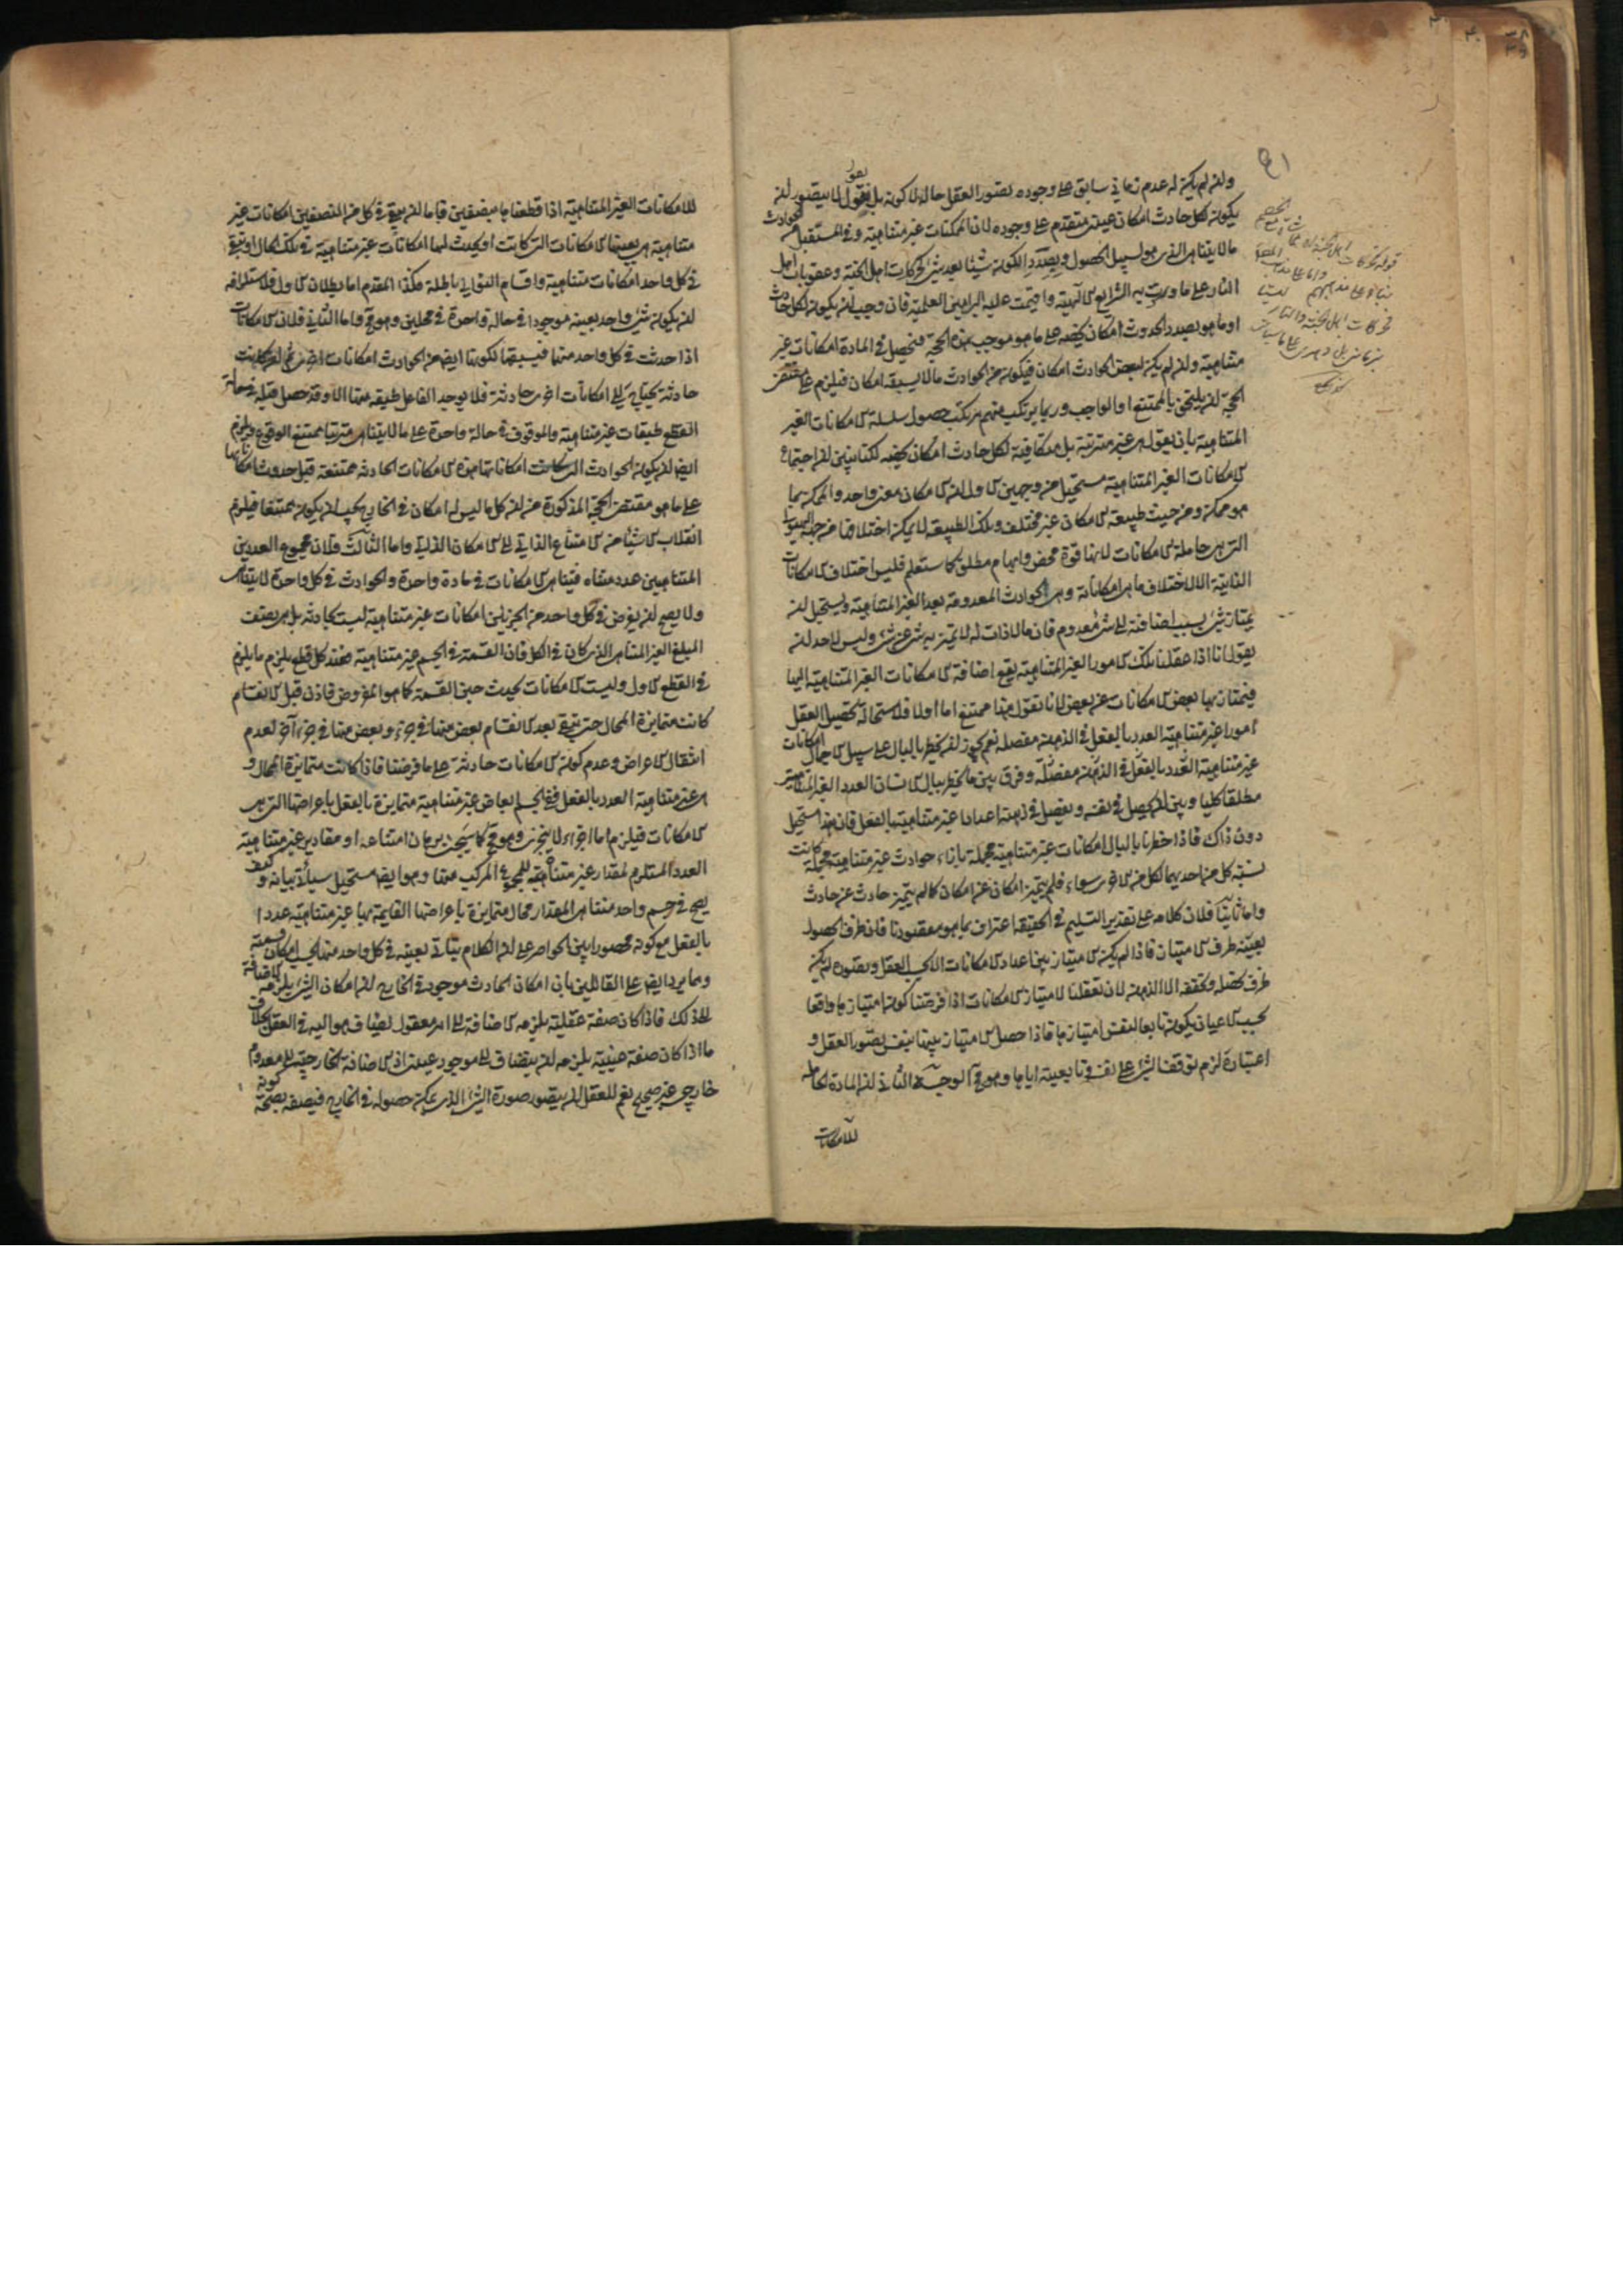 ولن لم يكن له عدم زماني سابق على وجوده بتصور العقل حالة لا كونه بل نقول لما يتصور لن
يكون لكل حادث امكان عيني متقدم على وجوده لان الممكنات غير متناهية وفي المستقبل من الحوادث
ما لا يتناهى الذي هو لسبيل الحصول وبصدد الكون شيئا بعد شئ كحركات اهل الجنة وعقوبات اهل
النار على ما وردت به الشرايع الآلهية واقيمت عليه البراهين العلمية فان وجب لن يكون لكل حادث
او ما هو بصدد الحدوث امكان يخصه على ما هو موجب هذه الحجة فتحصل في المادة امكانات غير
متناهية ولن لم يكن لبعض الحوادث امكان فيكون من الحوادث ما لا يسبقه امكان فيلزم على مقتضى
الحجة لن يلتحق بالممتنع او الواجب وربما يرتكب منهم مرتكب حصول سلسلة الامكانات الغير
المتناهية بان يقول هي غير مترتبة بل متكافية لكل حادث امكان يخصه لكنا نبين لن اجتماع
الامكانات الغير المتناهية مستحيل من وجهين الاول لن الامكان معنى واحد والممكن بما
هو ممكن ومن حيث طبيعة الامكان غير مختلف وتلك الطبيعة لا يمكن اختلافها من جهة الهيولى
التي هي حاملة الامكانات لانها قوة محض وابهام مطلق كما ستعلم فليس اختلاف الامكانات
الذاتية الا لاختلاف ما هي امكاناته وهي الحوادث المعدومة بعد الغير المتناهية ويستحيل لن
يمتاز شئ بسبب اضافته الى شئ معدوم فان ما لا ذات له لا يتميز به شئ عن شئ وليس لاحد لن
يقول انا اذا عقلنا تلك الامور الغير المتناهية يقع اضافة الامكانات الغير المتناهية اليها
فيمتاز بها بعض الامكانات عن بعض لانا نقول هذا ممتنع اما اولا فلاستحالة تحصيل العقل
امورا غير متناهية العدد بالفعل في الذهن مفصلة نعم يجوز لن يخطر بالبال على سبيل الاجمال امكانات
غير متناهية العدد بالفعل في الذهن مفصلة وفرق بين ما يخطر ببال الانسان العدد الغير المتناهي
مطلقا كليا وبين لن يحصل في نفسه ويفصل في ذهنه اعدادا غير متناهية بالفعل فان هذا مستحيل
دون ذاك فاذا اخطرنا بالبال امكانات غير متناهية مجملة بازاء حوادث غير متناهية مجملة كانت
نسبة كل من احديهما لكل من الاخرى سواء فلم يتميز امكان عن امكان كما لم يتميز حادث عن حادث
واما ثانيا فلان كلامه على تقدير التسليم في الحقيقة اعتراف بما هو مقصودنا فان ظرف الحصول
بعينه ظرف الامتياز فاذا لم يكن الامتياز بين اعداد الامكانات الا بحسب العقل وتصوره لم يكن
ظرف تحصله وتحققه الا الذهن لان تعقلنا لامتياز الامكانات اذا فرضنا كون امتيازها واقعا
بحسب الاعيان يكون تابعا لنفس امتيازها فاذا حصل الامتياز بينها بنفس تصور العقل و
اعتباره لزم توقف الشئ على نفسه وتابعيته اياها وهو مح الوجه الثاني لن المادة الحاملة
للامكانات
للامكانات الغير المتناهية اذا قطعناها بنصفين فاما لن يبقى في كل من النصفين امكانات غير
متناهية هي بعينها الامكانات التي كانت او يحدث لهما امكانات غير متناهية في تلك الحال او يبقى
في كل واحد امكانات متناهية واقسام التوالي باطلة فكذا المقدم اما بطلان الاول فلاستلزامه
لن يكون شئ واحد بعينه موجودا في حالة واحدة في محلين وهو مح واما الثاني فلان الامكانات
اذا حدثت في كل واحد منهما فيسبقها لكونها ايضا من الحوادث امكانات اخرى ثم لن كانت
حادثة يحتاج الى امكانات اخرى حادثة فلا يوجد الفاعل طبقة منها الا وقد حصل قبله في حالة
القطع طبقات غير متناهية والموقوف في حالة واحدة على ما لا يتناهى مترتبا ممتنع الوقوع ويلزم
ايضا لن يكون الحوادث التي كانت امكاناتها هذه الامكانات الحادثة ممتنعة قبل حدوث امكاناتها
على ما هو مقتضى الحجة المذكورة من لن كل ما ليس له امكان في الخارج يجب لن يكون ممتنعا فيلزم
انقلاب الاشياء من الامتناع الذاتي الى الامكان الذاتي واما الثالث فلان مجموع العددين
المتناهيين عدد متناه فيتناهى الامكانات في مادة واحدة والحوادث في كل واحدة لا يتناهى
ولا يصح لن يفرض في كل واحد من الجزئين امكانات غير متناهية ليست بحادثة بل هي نصف
المبلغ الغير المتناهي الذي كان في الكل فان القسمة في الجسم غير متناهية فعند كل قطع يلزم ما يلزم
في القطع الاول وليست الامكانات بحيث حين القسمة كما هو المفروض فاذن قبل الانقسام
كانت متمايزة المحال حتى يبقى بعد الانقسام بعض منها في جزء وبعض منها في جزء آخر لعدم
انتقال الاعراض وعدم كون الامكانات حادثة على ما فرضنا فاذا كانت متمايزة المحال و
هي غير متناهية العدد بالفعل ففي الجسم ابعاض غير متناهية متمايزة بالفعل باعراضها التي هي
الامكانات فيلزم اما اجزاء لا يتجزى وهو مح كما سيجئ برهان امتناعه او مقادير غير متناهية
العدد المستلزم لمقدار غير متناهية للمجموع المركب منها وهو ايضا مستحيل سيأتي بيانه وكيف
يصح في جسم واحد متناهي المقدار محال متمايزة باعراضها القايمة بها غير متناهية عددا
بالفعل مع كونه محصورا بين الحواصر على لن الكلام يتأتى بعينه في كل واحد منها بحسب امكان قسمته
ومما يرد ايضا على القائلين بان امكان الحادث موجود في الخارج لن امكان الشئ يلزمه الاضافة
الى ذلك فاذا كان صفة عقلية يلزمه الاضافة الى امر معقول يضاف هو اليه في العقل بخلاف
ما اذا كان صفة عينية يلزمه لن يضاف الى موجود عيني اذ الاضافة الخارجية الى معدوم
خارجي غير صحيح نعم للعقل لن يتصور صورة الشئ الذي يمكن حصوله في الخارج فيصفه بصحة كونه